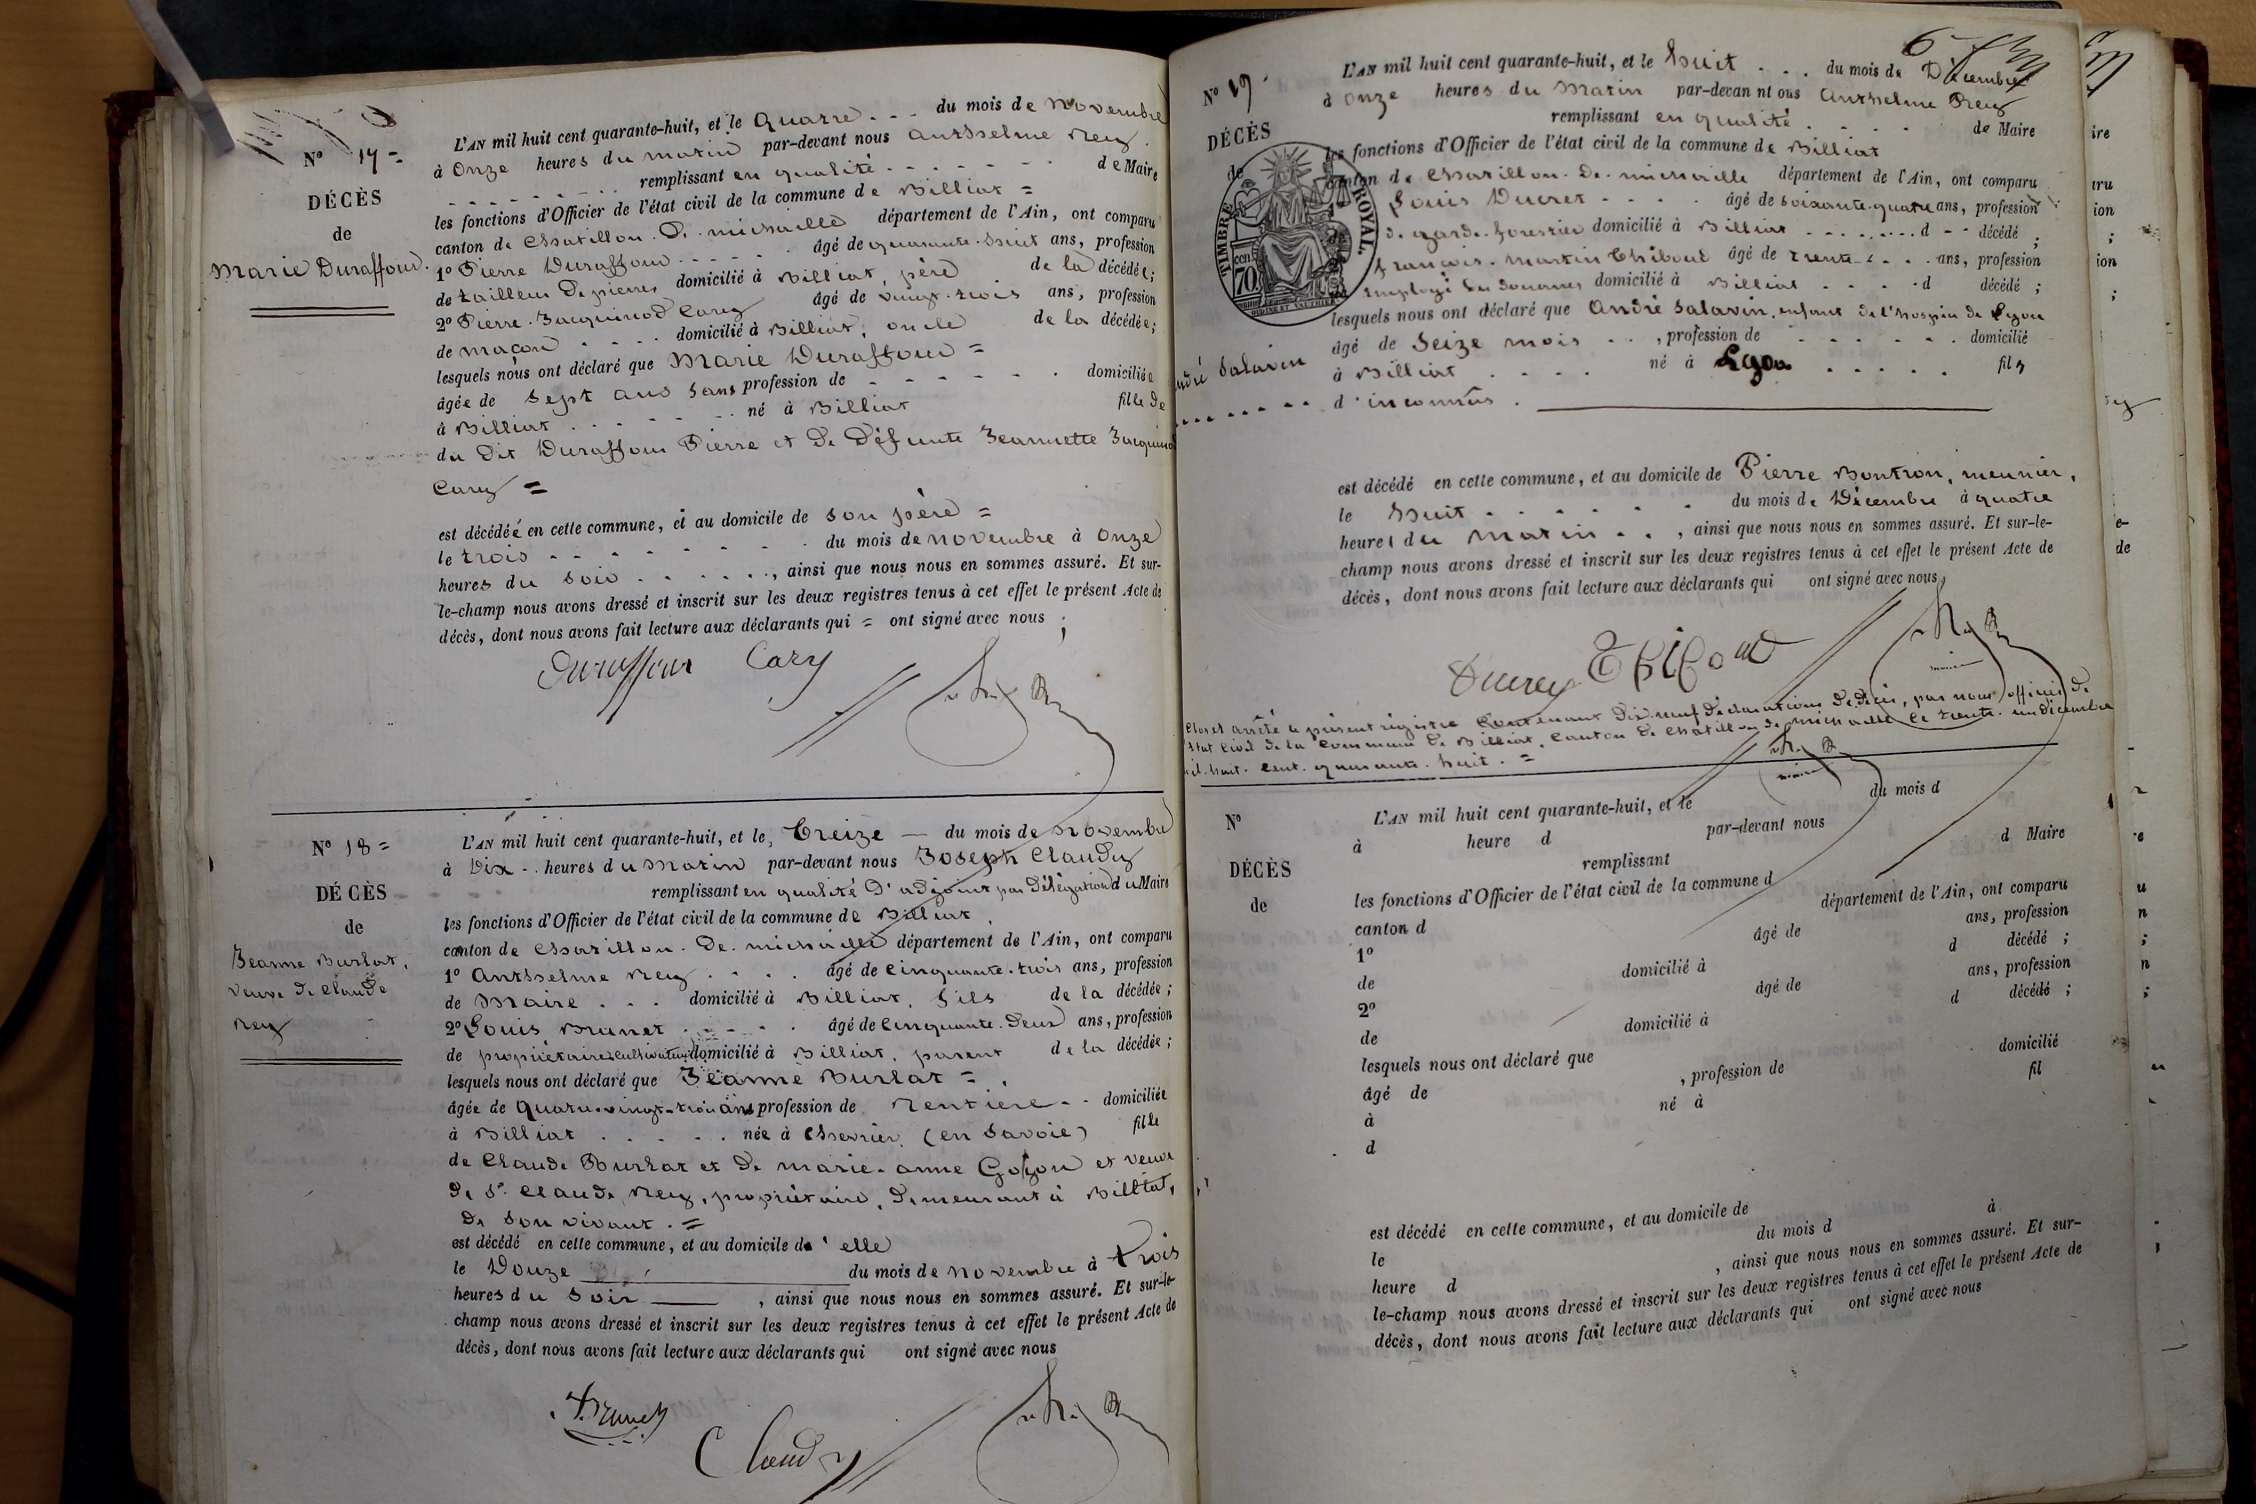 N° 17 =
DÉCÈS
de
Marie Duraffour.
L'AN mil huit cent quarante-huit, et le quatre - - - du mois de novembre
à onze heures du matin par-devant nous Anthelme Rey
remplissant en qualité - - - - - - de Maire
les fonctions d'Officier de l'état civil de la commune de Billiat =
canton de Chatillon. de. michaille département de l'Ain, ont comparu
1° Pierre Duraffour - - - - - âgé de quarante. huit ans, profession
de tailleur de pierres domicilié à Billiat, père de la décédée;
2° Pierre. Jacquinod Cary âgé de vingt-trois ans, profession
de maçon . . . . domicilié à Billiat, oncle de la décédée;
lesquels nous ont déclaré que Marie Duraffour =
âgée de sept ans sans profession de - - - - - . domiciliée
à Billiat . . . . . . né à Billiat fille de
du dit Duraffour Pierre et de défunte Jeannette Jacquinod
Cary =
est décédéé en cette commune, et au domicile de son père =
le trois - - - - - - - . du mois de novembre à onze
heures du soir . . . . . ., ainsi que nous nous en sommes assuré. Et sur-
le-champ nous avons dressé et inscrit sur les deux registres tenus à cet effet le présent Acte de
décès, dont nous avons fait lecture aux déclarants qui = ont signé avec nous ;
Duraffour Cary
N° 18 =
DÉCÈS
de
Jeanne Burlat,
veuve de Claude
Rey
L'AN mil huit cent quarante-huit, et le, treize — du mois de novembre
à dix - . heures du matin par-devant nous Joseph Claudy
remplissant en qualité d'adjoint par délégation du Maire
les fonctions d'Officier de l'état civil de la commune de Billiat,
canton de Chatillon. de. michaille département de l'Ain, ont comparu
1° Anthelme Rey . . . . âgé de cinquante. trois ans, profession
de Maire . . . domicilié à Billiat, fils de la décédée;
2° Louis Brunet . - - - . âgé de cinquante. deux ans, profession
de propriétaire cultivateur domicilié à Billiat, parent de la décédée;
lesquels nous ont déclaré que Jeanne Burlat = .
âgée de quatre-vingt-trois ans profession de rentière - - domiciliée
à Billiat . . . . . née à Chevrier, (en Savoie) fille
de Claude Burlat et de marie. anne et veuve
de Sr. Claude Rey, propriétaire, demeurant à Billiat,
de son vivant. =
est décédé en cette commune, et au domicile d'elle
le Douze du mois de novembre à trois
heures du soir — , ainsi que nous nous en sommes assuré. Et sur-le-
champ nous avons dressé et inscrit sur les deux registres tenus à cet effet le présent Acte de
décès, dont nous avons fait lecture aux déclarants qui ont signé avec nous
Brunet
Claudy
N° 19.
DÉCÈS
de
TIMBRE ROYAL
70
Salavin
L'AN mil huit cent quarante-huit, et le huit . . . du mois de Décembre
à onze heures du matin par-devan nt ous Anthelme Rey
remplissant en qualité . . . . de Maire
les fonctions d'Officier de l'état civil de la commune de Billiat
canton de Chatillon. de. michaille département de l'Ain, ont comparu
Louis Ducret - - - - âgé de soixante-quatre ans, profession
de garde-forestier domicilié à Billiat - - - - - - - d - - décédé ;
françois. Martin Thiboud âgé de trente - . . . ans, profession
employé des douanes domicilié à Billiat . . . . . d décédé ;
lesquels nous ont déclaré que André Salavin, enfant de l'hospice de Lyon
âgé de seize mois . . , profession de - - - - - . domicilié
à Billiat . . . . né à Lyon . . . . . fils
d'inconnus .
est décédé en cette commune, et au domicile de Pierre Bontron, meunier,
le huit . . . . . . du mois de Décembre à quatre
heures du matin . . , ainsi que nous nous en sommes assuré. Et sur-le-
champ nous avons dressé et inscrit sur les deux registres tenus à cet effet le présent Acte de
décès, dont nous avons fait lecture aux déclarants qui ont signé avec nous,
Ducret Thiboud
Clos et arrêté le présent registre contenant dix neuf déclarations de décès, par nous officier de
état civil de la commune de Billiat, canton de Chatillon de michaille ce trente-un décembre
mil. huit. cent. quarante. huit. =
N°
DÉCÈS
de
L'AN mil huit cent quarante-huit, et le du mois d
à heure d par-devant nous
remplissant d Maire
les fonctions d'Officier de l'état civil de la commune d
canton d département de l'Ain, ont comparu
1° âgé de ans, profession
de domicilié à d décédé ;
2° âgé de ans, profession
de domicilié à d décédé ;
lesquels nous ont déclaré que
âgé de , profession de domicilié
à né à fil
d
est décédé en cette commune, et au domicile de
le du mois d à
heure d , ainsi que nous nous en sommes assuré. Et sur-
le-champ nous avons dressé et inscrit sur les deux registres tenus à cet effet le présent Acte de
décès, dont nous avons fait lecture aux déclarants qui ont signé avec nous